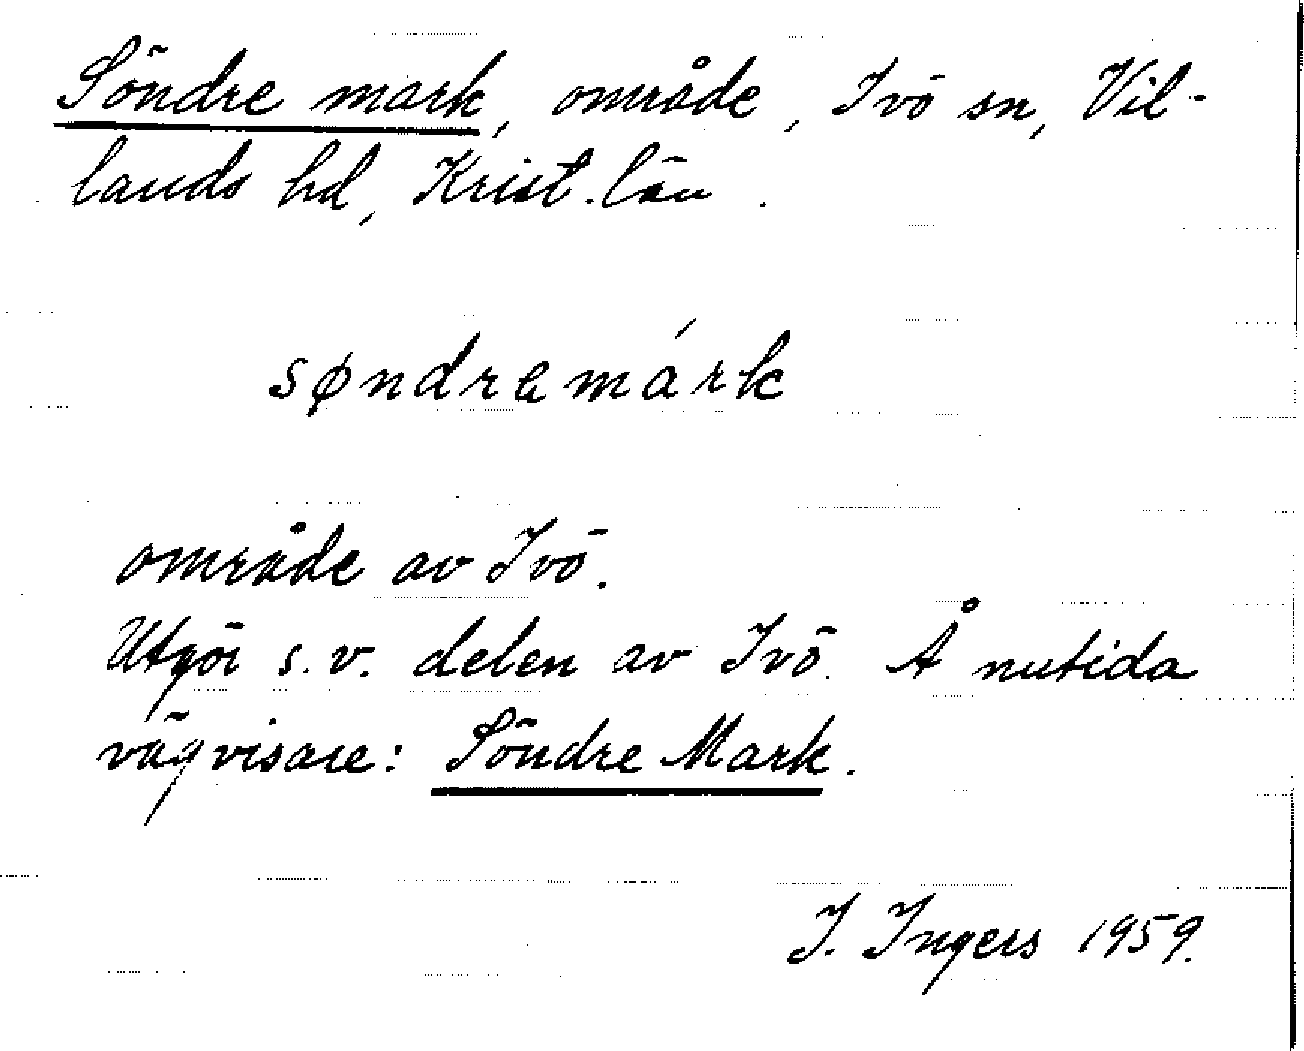 Söndre mark, område, Ivö sn, Vil-
lands hd, Krist. län.
søndramárk
område av Ivö.
Utgör s.v. delen av Ivö. Å nutida
vägvisare: Söndre Mark.
I. Ingers 1959.